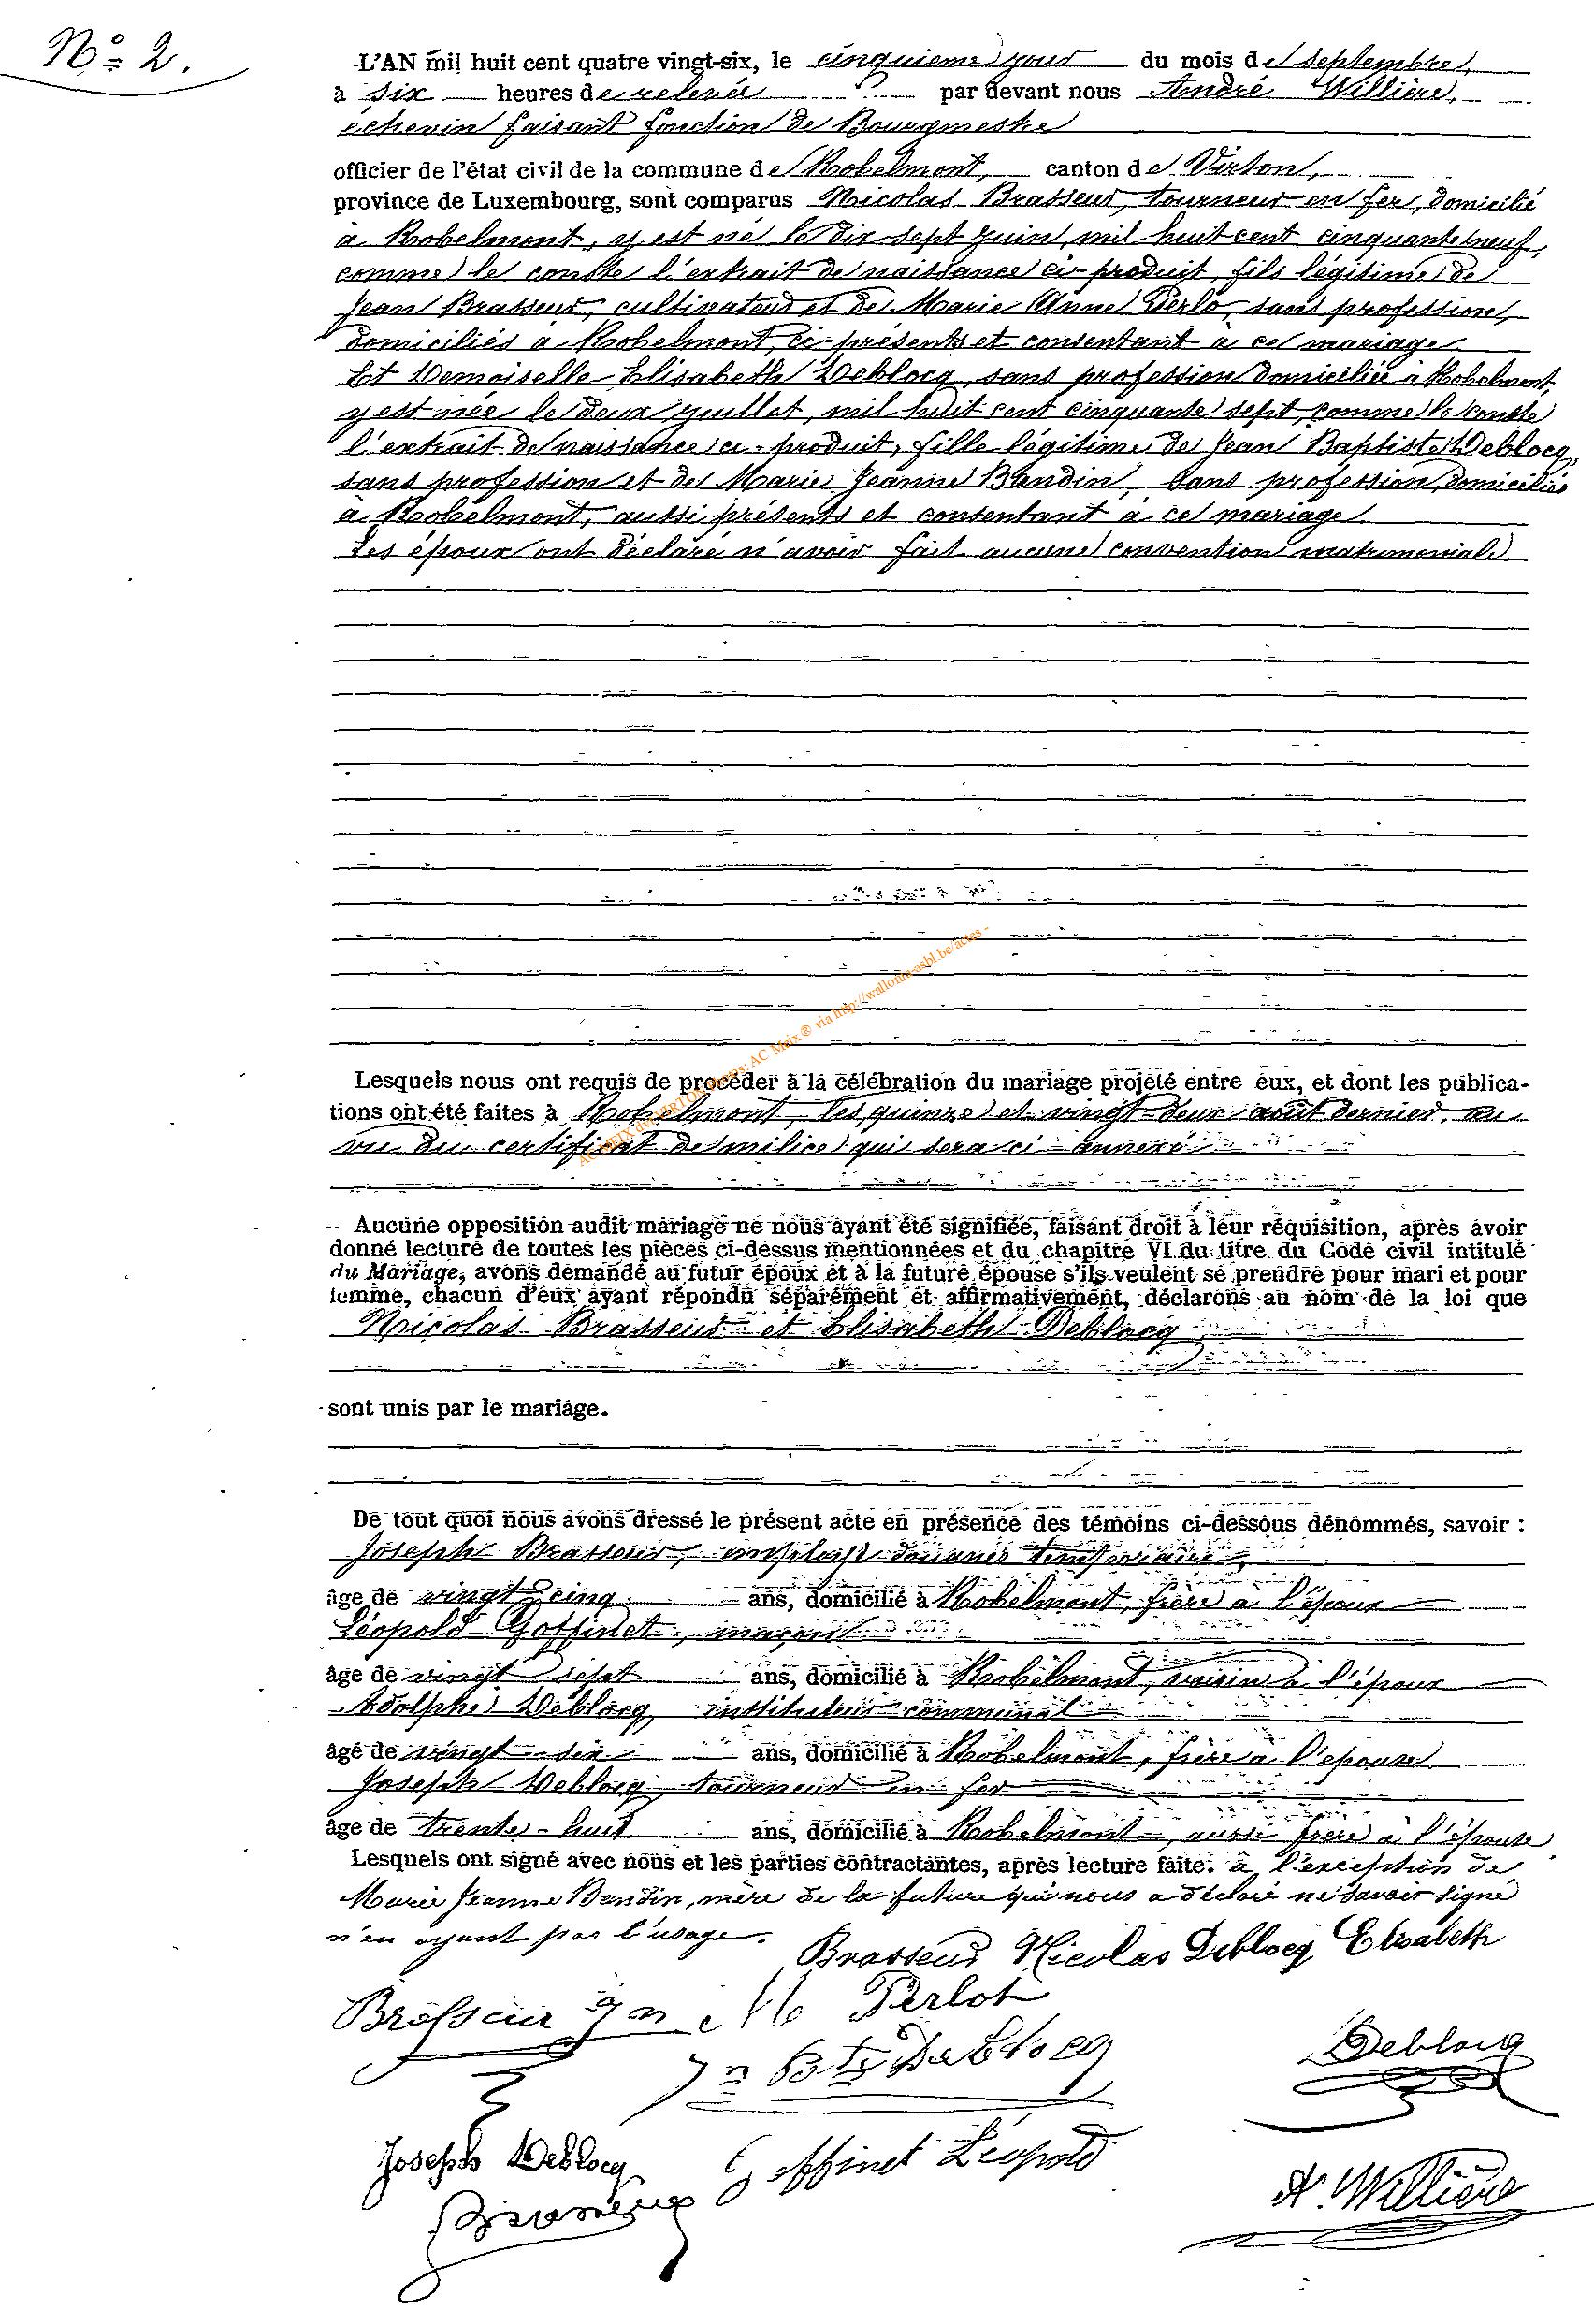 N° 2.
L'AN mil huit cent quatre vingt-six, le cinquieme jour du mois de septembre,
à six heures de relevée par devant nous André Willière,
échevin faisant fonction de Bourgmestre
officier de l'état civil de la commune de Robelmont, canton de Virton,
province de Luxembourg, sont comparus Nicolas Brasseur, tourneur en fer, domicilié
à Robelmont, y est né le dix-sept juin, mil huit cent cinquante neuf,
comme le conste l'extrait de naissance ci-produit, fils légitime de
Jean Brasseur, cultivateur et de Marie Anne Perlo, sans profession,
domiciliés à Robelmont, ci-présents et consentant à ce mariage
Et Demoiselle Elisabeth Deblocq, sans profession domiciliée à Robelmont,
y est née le deux juillet, mil huit cent cinquante sept, comme le conste
l'extrait de naissance ci-produit, fille légitime de Jean Baptiste Deblocq,
sans profession et de Marie Jeanne Bandin, sans profession, domiciliés
à Robelmont, aussi présents et consentant à ce mariage
Les époux ont déclaré n'avoir fait aucune convention matrimoniale
AC MEIX dvt VIRTON AC Meix ® via http://wallonia-asbl.be/actes -
Lesquels nous ont requis de procéder à la célébration du mariage projeté entre eux, et dont les publica-
tions ont été faites à Robelmont, les quinze et vingt-deux août dernier, au
vu du certificat de milice qui sera ci-annexé
Aucune opposition audit mariage ne nous ayant été signifiée, faisant droit à leur réquisition, après avoir
donné lecture de toutes les pièces ci-dessus mentionnées et du chapitre VI du titre du Code civil intitulé
du Mariage, avons demandé au futur époux et à la future épouse s'ils veulent se prendre pour mari et pour
femme, chacun d'eux ayant répondu séparément et affirmativement, déclarons au nom de la loi que
Nicolas Brasseur et Elisabeth Deblocq
sont unis par le mariage.
De tout quoi nous avons dressé le présent acte en présence des témoins ci-dessous dénommés, savoir :
Joseph Brasseur, employé douanes temporaire,
âgé de vingt cinq ans, domicilié à Robelmont, frère à l'époux
Léopold Goffinet, maçon
âgé de vingt sept ans, domicilié à Robelmont, voisin à l'époux
Adolphe Deblocq, instituteur communal
âgé de vingt-six ans, domicilié à Robelmont, frère à l'épouse
Joseph Deblocq, tourneur en fer
âgé de trente-huit ans, domicilié à Robelmont, aussi frère à l'épouse
Lesquels ont signé avec nous et les parties contractantes, après lecture faite. à l'exception de
Marie Jeanne Bandin, mère de la future qui nous a déclaré ne savoir signé
n'en ayant pas l'usage.
Brasseur Nicolas Deblocq Elisabeth
Brasseur Jn M Perlot
Jn Bte Deblocq
Deblocq
Joseph Deblocq
Goffinet Léopold
Brasseur
A. Willière